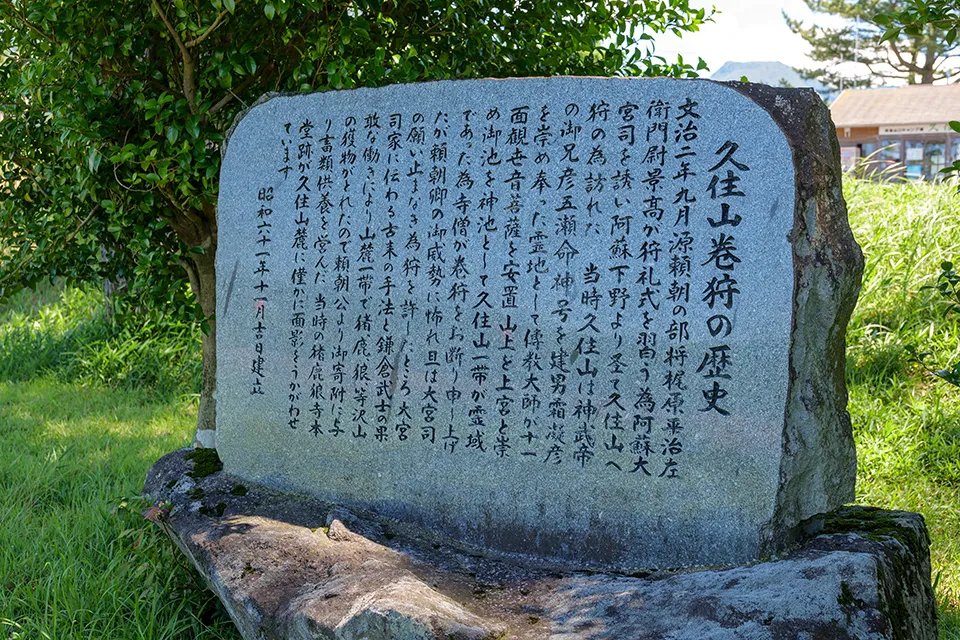 久住山巻狩の歴史
文治二年九月源頼朝の部将梶原平治左
衛門尉景高が狩礼式を習う為阿蘇大
宮司を誘い阿蘇下野より圣て久住山へ
狩の為訪れた 当時久住山は神武帝
の御兄彦五瀬命神号を建男霜凝彦
を崇め奉った霊地として傳教大師が十一
面観世音菩薩を安置山上を上宮と崇
め御池を神池として久住山一帯が霊域
であった為寺僧が巻狩をお断り申し上げ
たが頼朝卿の御威勢に怖れ旦は大宮司
の願い止まなき為狩を許したところ大宮
司家に伝わる古来の手法と鎌倉武士の果
敢な働きにより山麓一帯で猪鹿狼等沢山
の獲物がとれたので頼朝公より御寄附に与
り畜類供養を営んだ 当時の猪鹿狼寺本
堂跡が久住山麓に僅かに面影をうかがわせ
ています
昭和六十一年十一月吉日建立